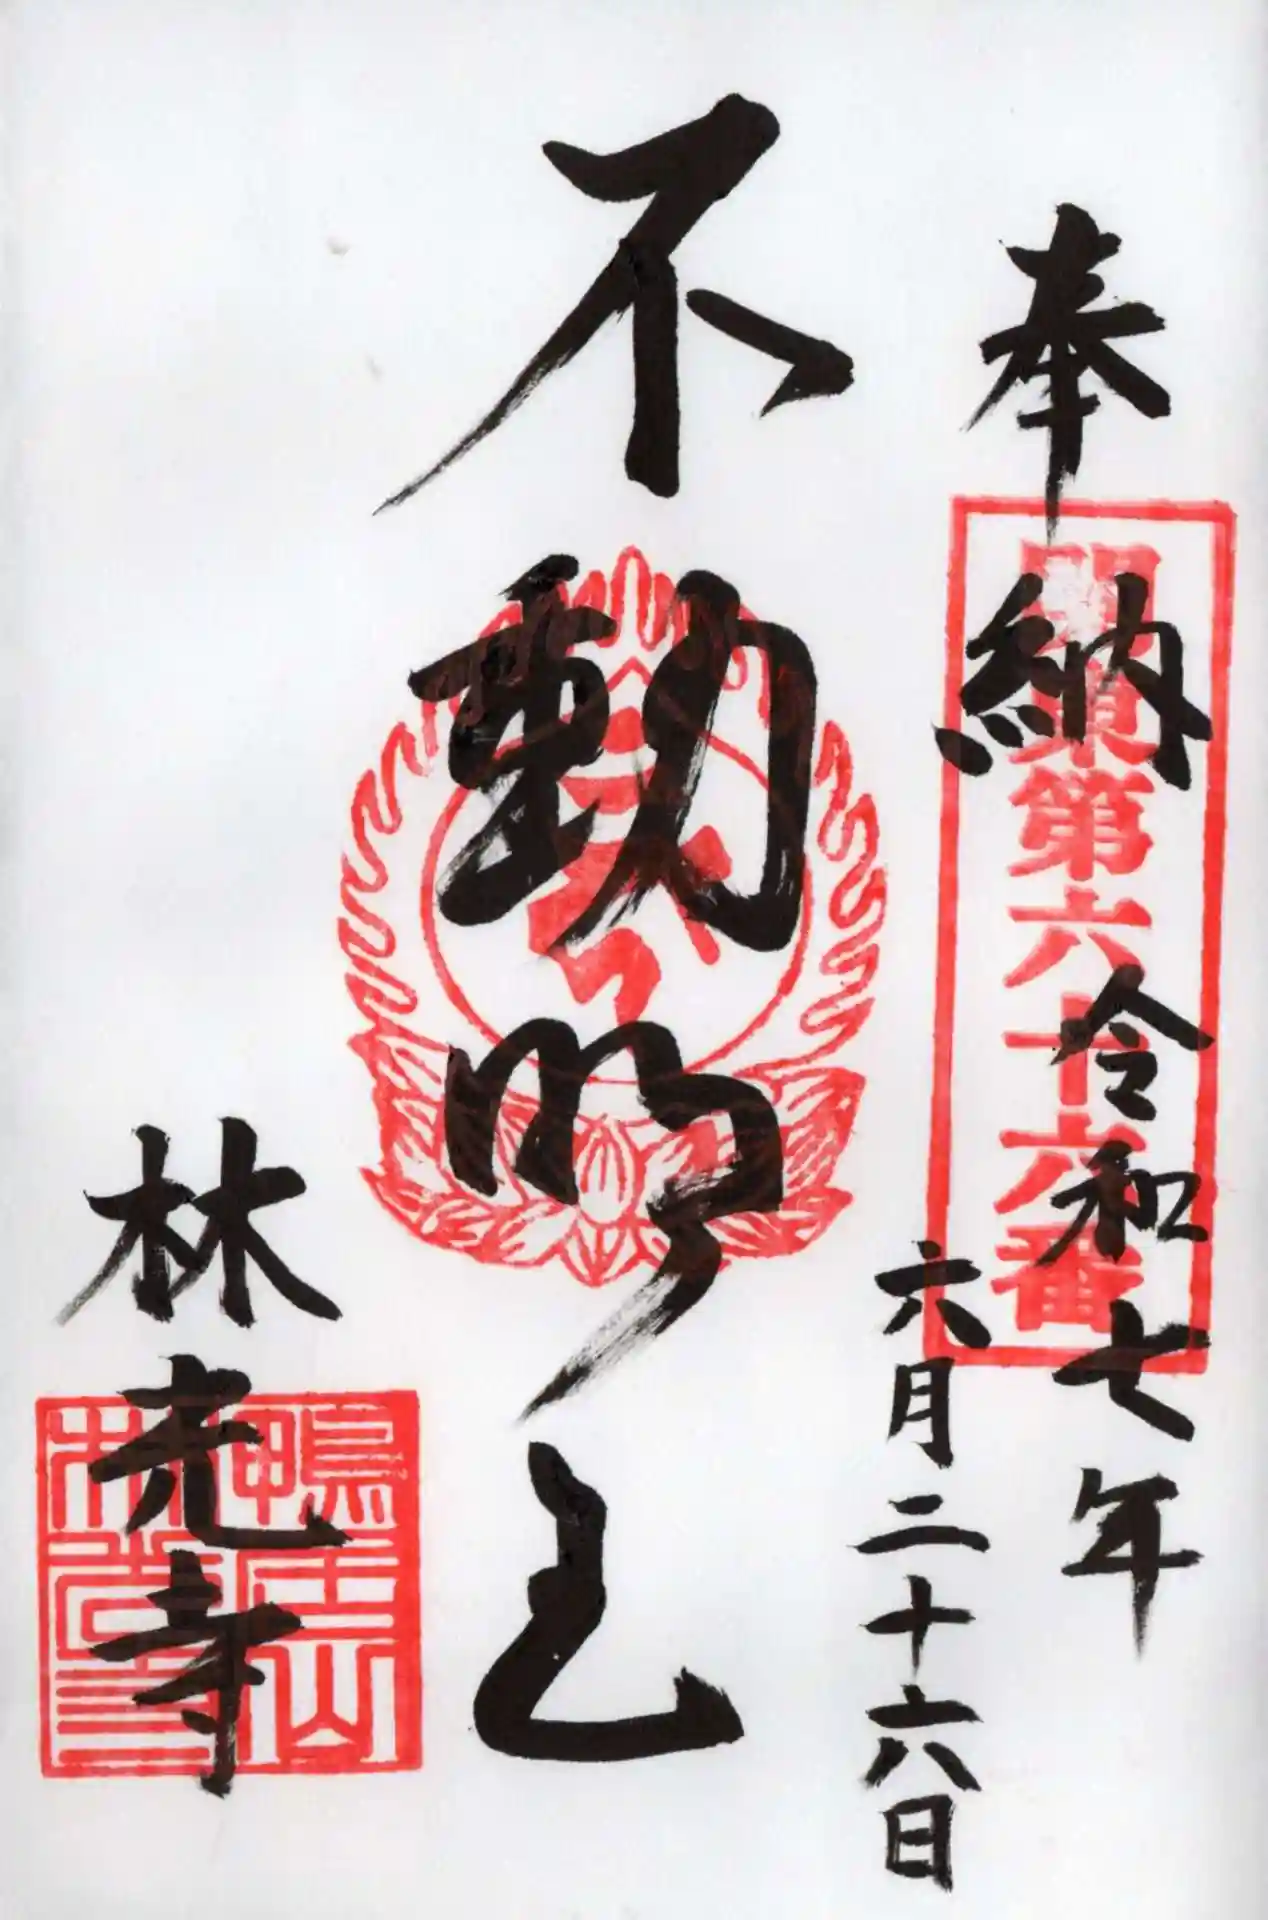 奉納
關東第六十六番
令和七年
六月二十六日
不動明王
林光寺
鴨王山
林光寺